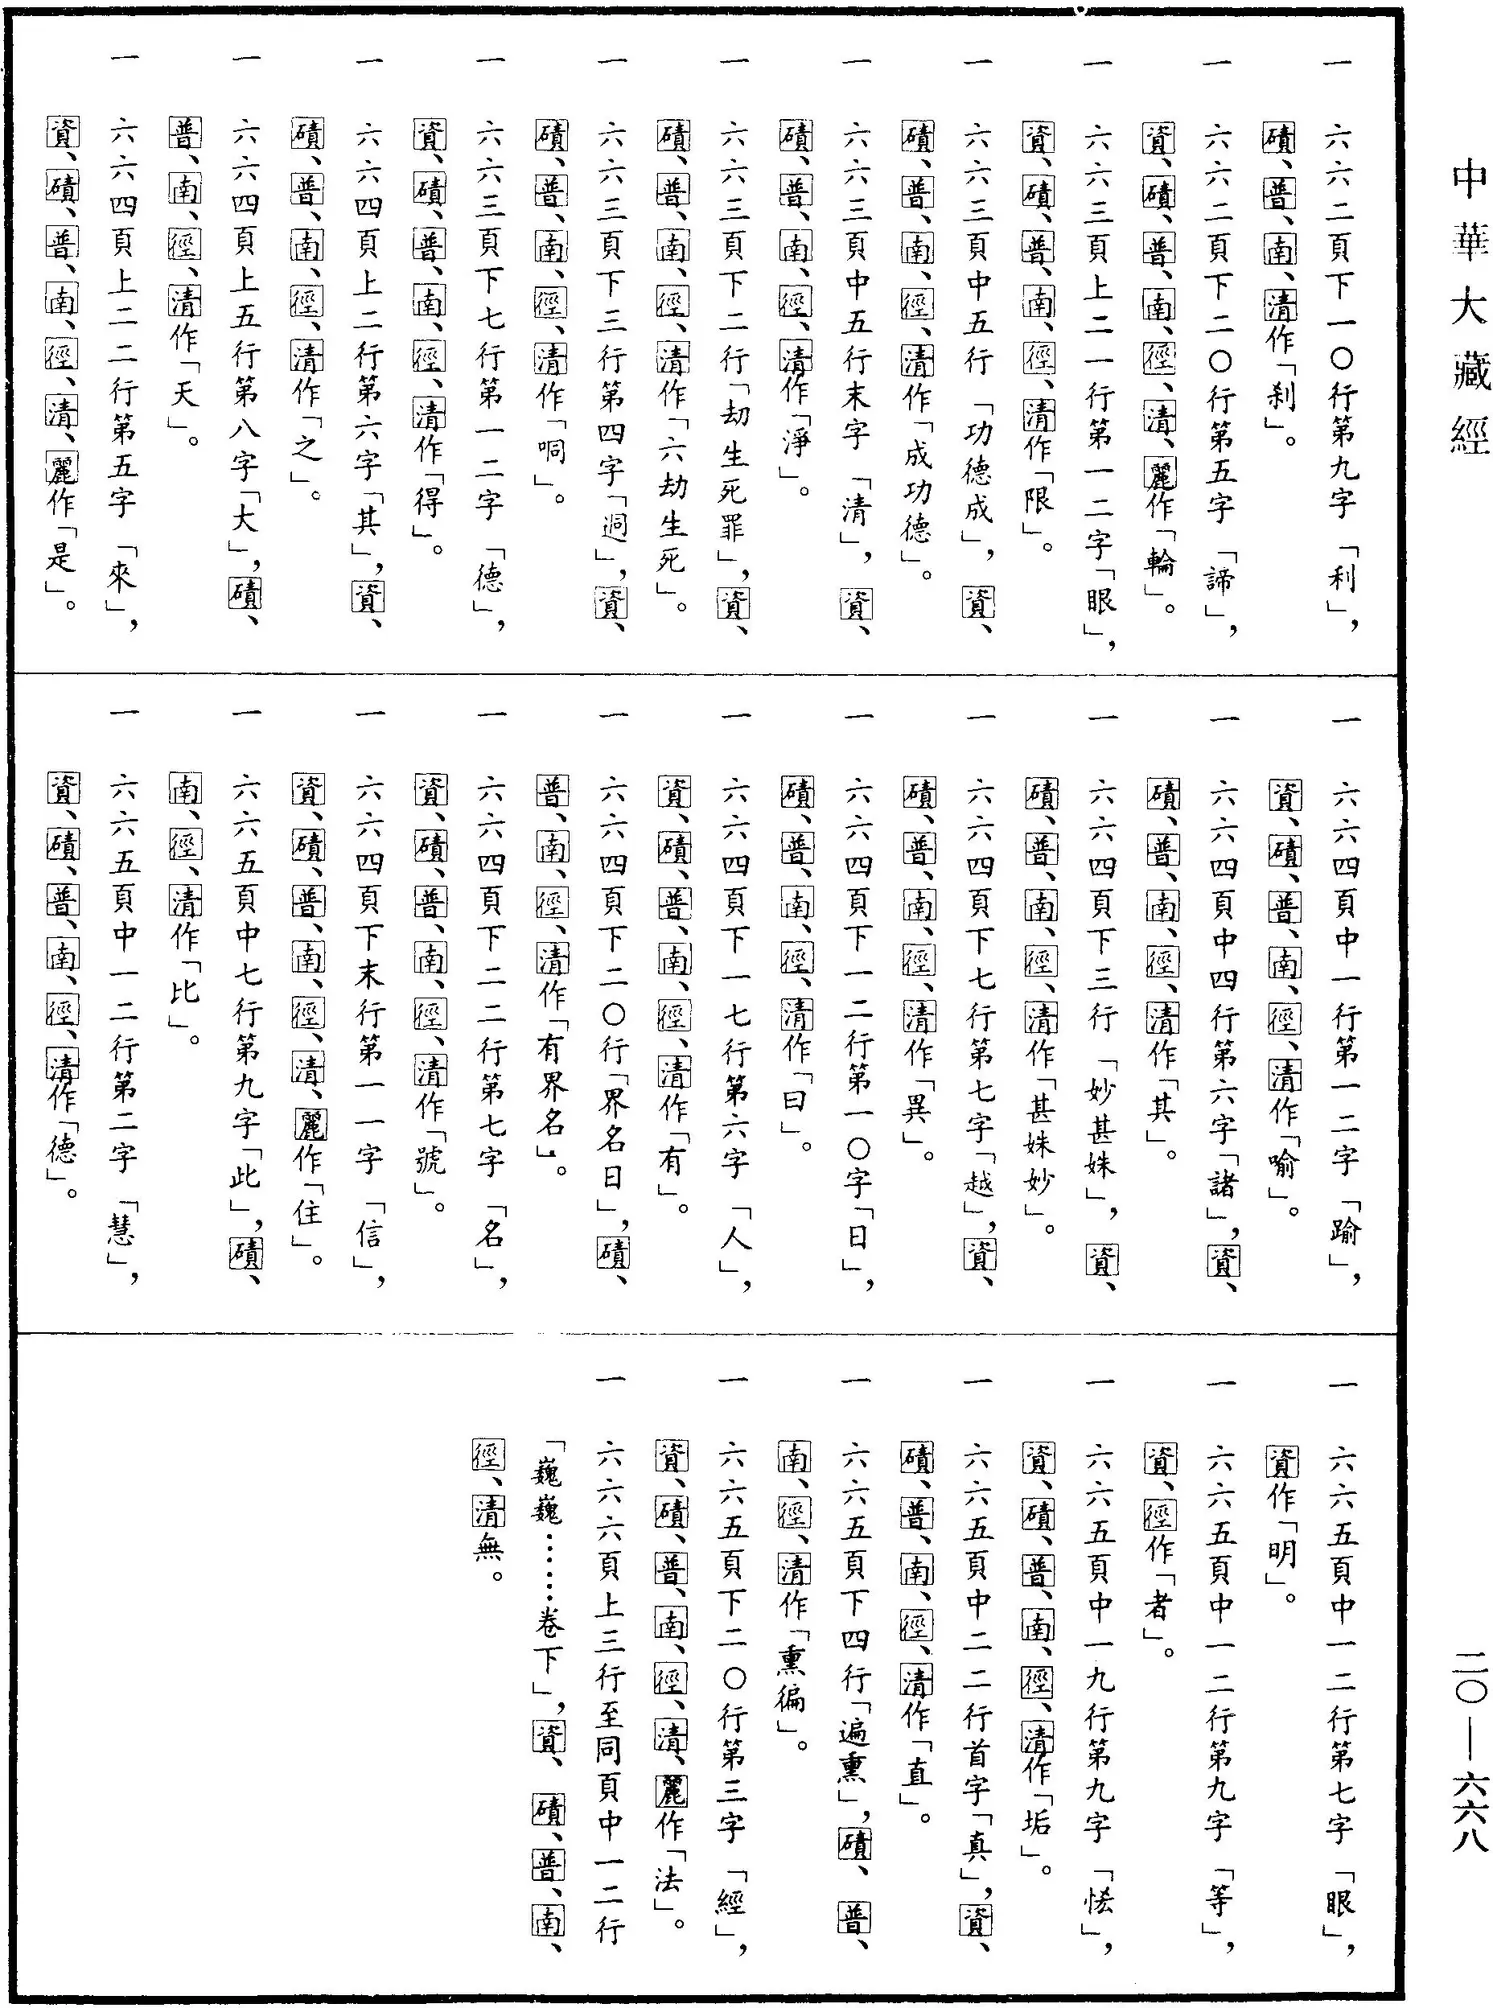 中華大藏經
一　六六二頁下一〇行第九字「利」，
磧、普、南、清作「刹」。
一　六六二頁下二〇行第五字「諦」，
資、磧、普、南、徑、清、麗作「輪」。
一　六六三頁上二一行第一二字「眼」，
資、磧、普、南、徑、清作「限」。
一　六六三頁中五行「功德成」，資、
磧、普、南、徑、清作「成功德」。
一　六六三頁中五行末字「清」，資、
磧、普、南、徑、清作「淨」。
一　六六三頁下二行「劫生死罪」，資、
磧、普、南、徑、清作「六劫生死」。
一　六六三頁下三行第四字「迥」，資、
磧、普、南、徑、清作「哃」。
一　六六三頁下七行第一二字「德」，
資、磧、普、南、徑、清作「得」。
一　六六四頁上二行第六字「其」，資、
磧、普、南、徑、清作「之」。
一　六六四頁上五行第八字「大」，磧、
普、南、徑、清作「天」。
一　六六四頁上二二行第五字「來」，
資、磧、普、南、徑、清、麗作「是」。
一　六六四頁中一行第一二字「踰」，
資、磧、普、南、徑、清作「喻」。
一　六六四頁中四行第六字「諸」，資、
磧、普、南、徑、清作「其」。
一　六六四頁下三行「妙甚姝」，資、
磧、普、南、徑、清作「甚姝妙」。
一　六六四頁下七行第七字「越」，資、
磧、普、南、徑、清作「異」。
一　六六四頁下一二行第一〇字「日」，
磧、普、南、徑、清作「曰」。
一　六六四頁下一七行第六字「人」，
資、磧、普、南、徑、清作「有」。
一　六六四頁下二〇行「界名日」，磧、
普、南、徑、清作「有界名」。
一　六六四頁下二二行第七字「名」，
資、磧、普、南、徑、清作「號」。
一　六六四頁下末行第一一字「信」，
資、磧、普、南、徑、清、麗作「住」。
一　六六五頁中七行第九字「此」，磧、
南、徑、清作「比」。
一　六六五頁中一二行第二字「慧」，
資、磧、普、南、徑、清作「德」。
一　六六五頁中一二行第七字「眼」，
資作「明」。
一　六六五頁中一二行第九字「等」，
資、徑作「者」。
一　六六五頁中一九行第九字「恡」，
資、磧、普、南、徑、清作「垢」。
一　六六五頁中二二行首字「真」，資、
磧、普、南、徑、清作「直」。
一　六六五頁下四行「遍熏」，磧、普、
南、徑、清作「熏徧」。
一　六六五頁下二〇行第三字「經」，
資、磧、普、南、徑、清、麗作「法」。
一　六六六頁上三行至同頁中一二行
「巍巍……卷下」，資、磧、普、南、
徑、清無。
二〇—六六八